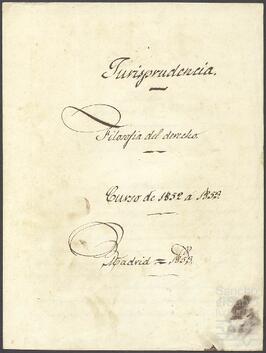 Jurisprudencia.
Filosofía del derecho.
Curso de 1852 a 1853.
Madrid = 1853.